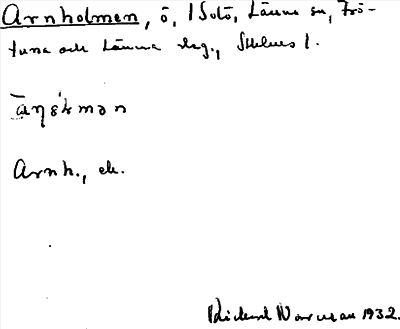 Arnholmen, ö, i Solö, Länna sn, Frö-
tuna och Länna slag., Sthlms l.
Arnh., ek.
Rickard Norman 1932.